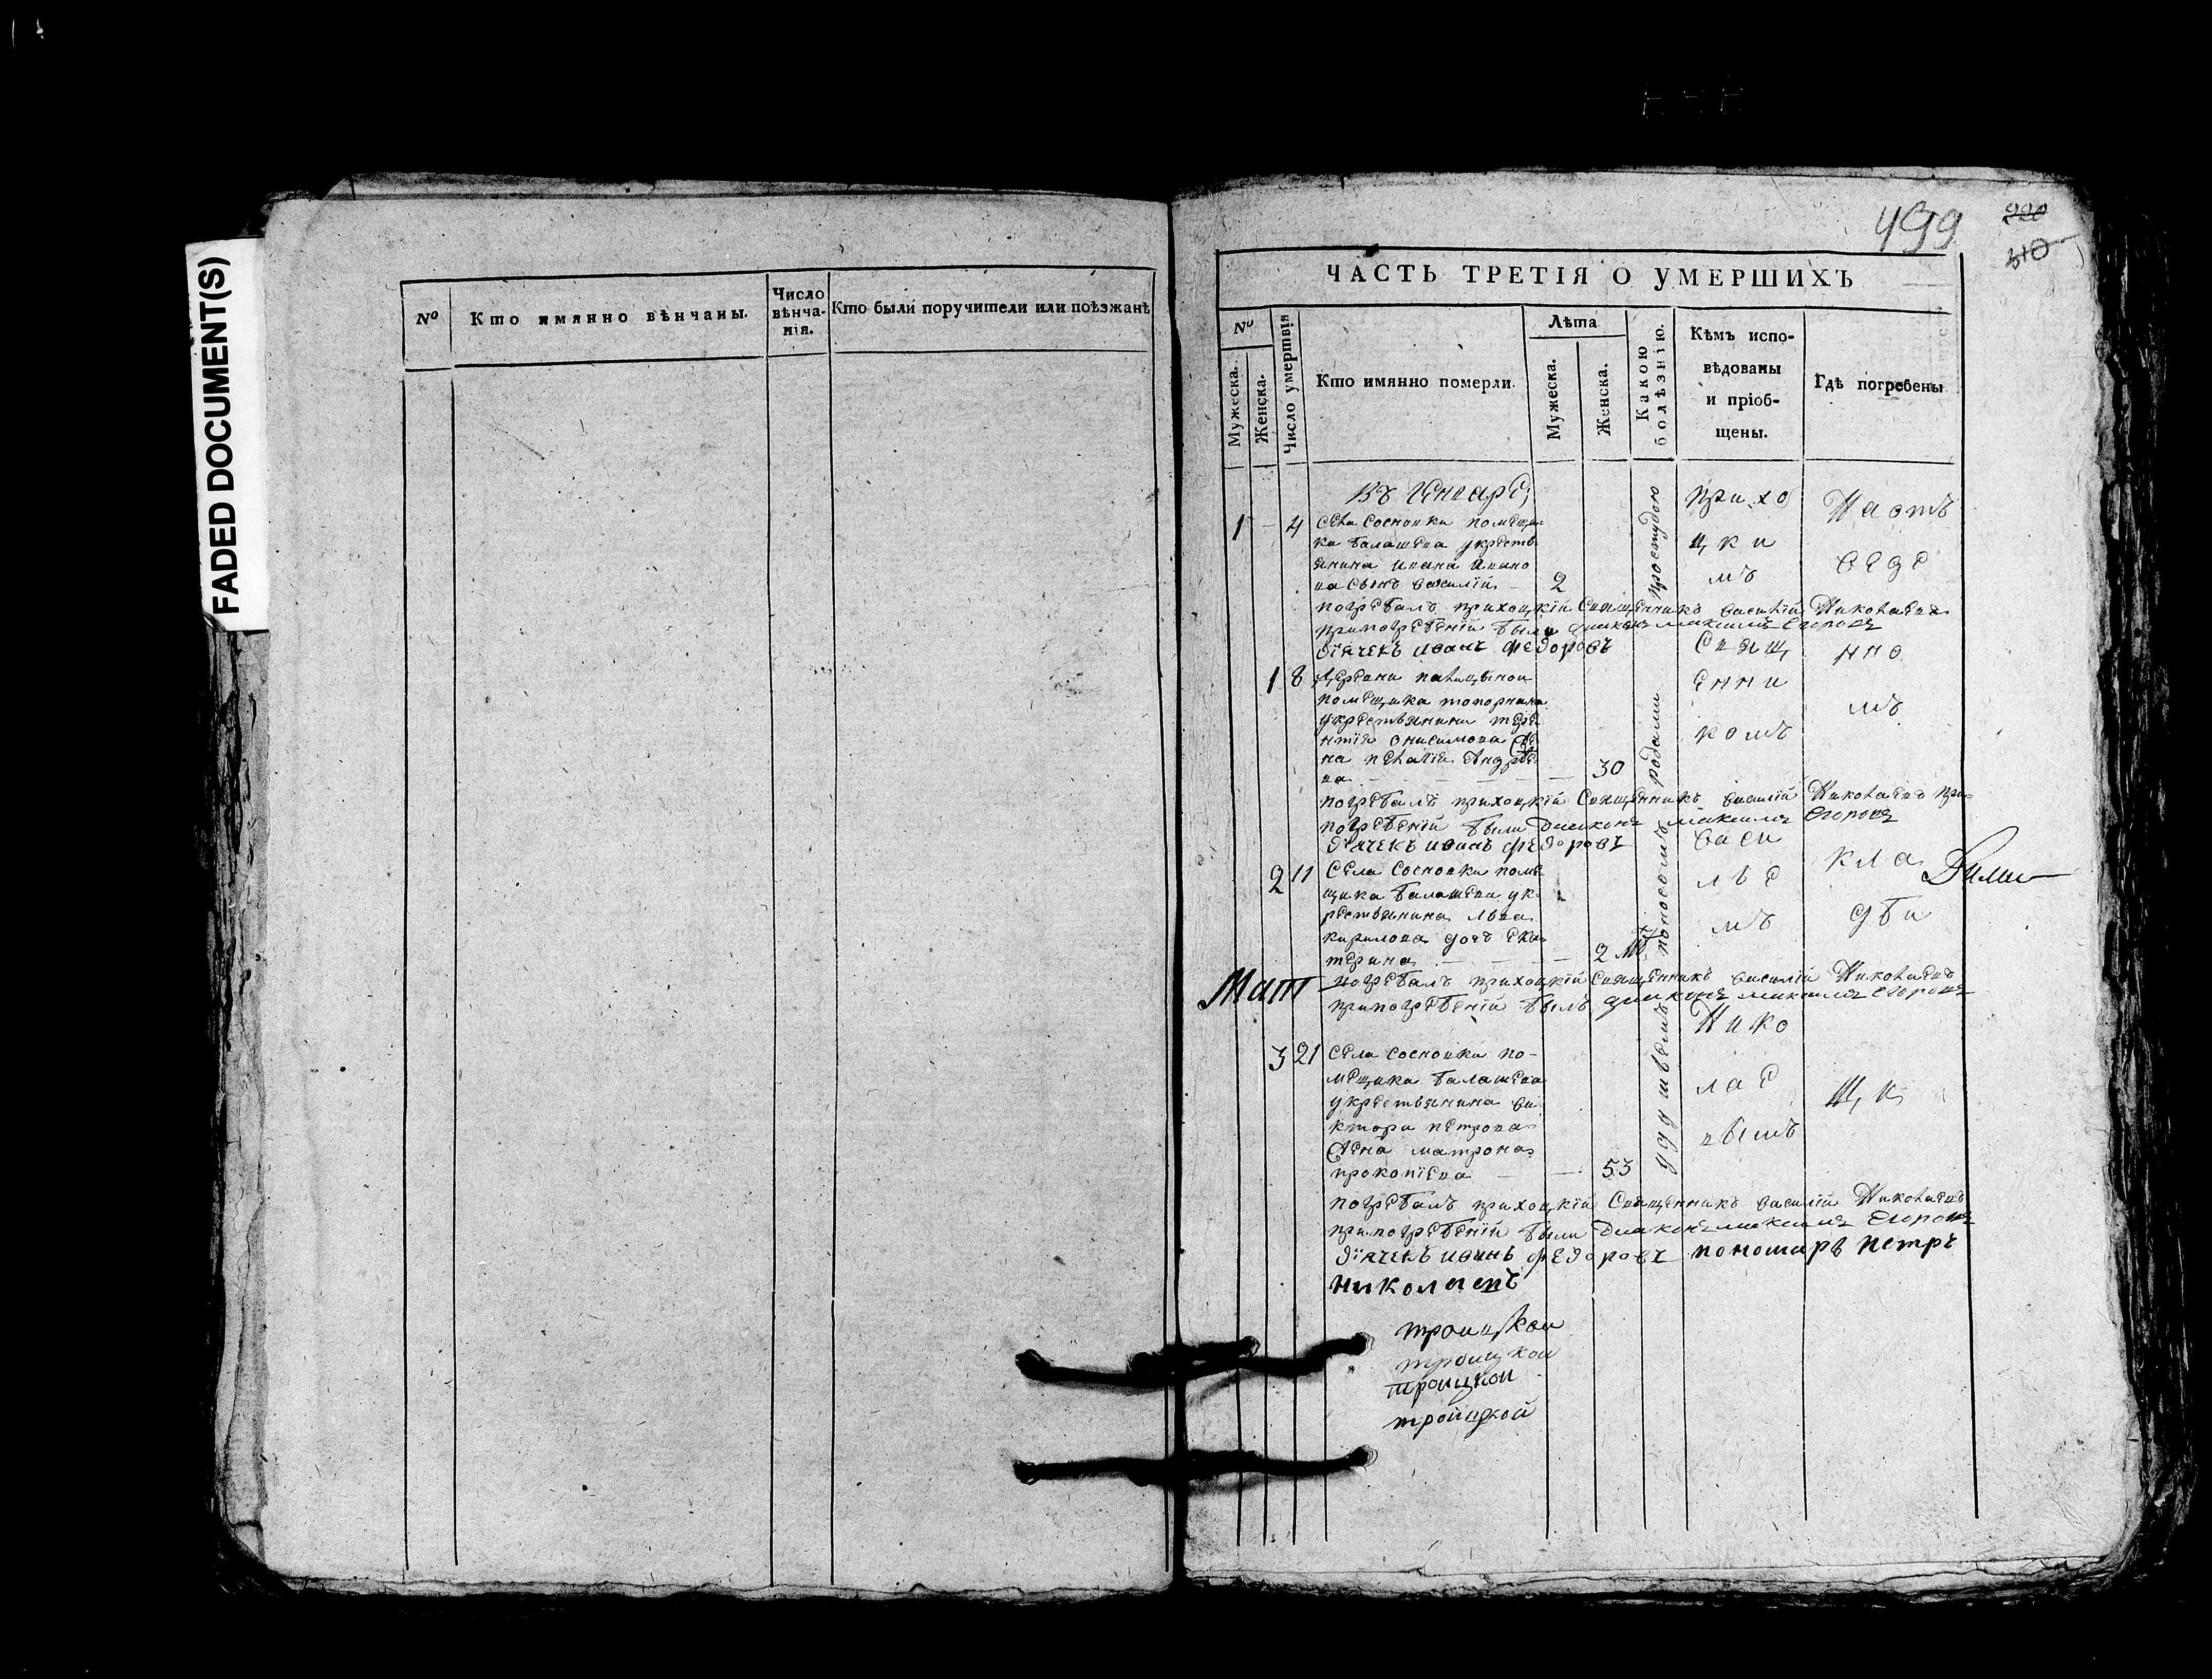 FADED DOCUMENT(S)
№
Кто имянно вѣнчаны.
Число вѣнча-
нія.
Кто были поручители или поѣзжанѣ
499
220
510
ЧАСТЬ ТРЕТІЯ О УМЕРШИХЪ
№
Мужеска.
Женска.
Число умертвія
Кто имянно померли.
Лѣта
Мужеска.
Женска.
Какою
болѣзнію.
Кѣмъ испо-
вѣдованы
и пріоб-
щены.
Гдѣ погребены
въ Генварѣ
1 4 села Сосновки помещи
ка балашева укрестъ
янина ивана
ва сынъ василій 2
простудою
погребалъ приходкій Священникъ василій Николаевъ
припогребеній были диаконъ максимъ Егоровъ
дїячекъ иванъ федоровъ
1 8 деревни
помещика топорнина
укрестьянина тере
нтія онисимова же
на пелагія Андрее
ва 30
родами
погребалъ приходкій Священникъ василій Николаевъ при
погребеній были Диаконъ максимъ Егоровъ
дїячекъ иванъ федоровъ
2 11 Села Сосновки поме
щика балашева ук
рестьянина льва
кирилова дочь Ека
терина 2 мѣ
поносомъ
Мат
погребалъ приходкій Священникъ василій Николаевъ
припогребеній былъ диаконъ максимъ Егоровъ
3 21 Села Сосновки по-
мещика балашева
укрестьянина ви
ктора петрова
жена матрона
прокопїева 53
удушьемъ
погребалъ приходкій Священникъ василій Николаевъ
припогребеній были Диаконъ максимъ Егоровъ
дїячекъ иванъ федоровъ пономарь петръ
николаевъ
троицкои
троицкои
троицкои
тройцкой
прихо
цки
мъ
Свящ
енни
комъ
васи
лье
мъ
Нико
лае
вымъ
Наотъ
веде
нно
мъ
кла
дби
щи